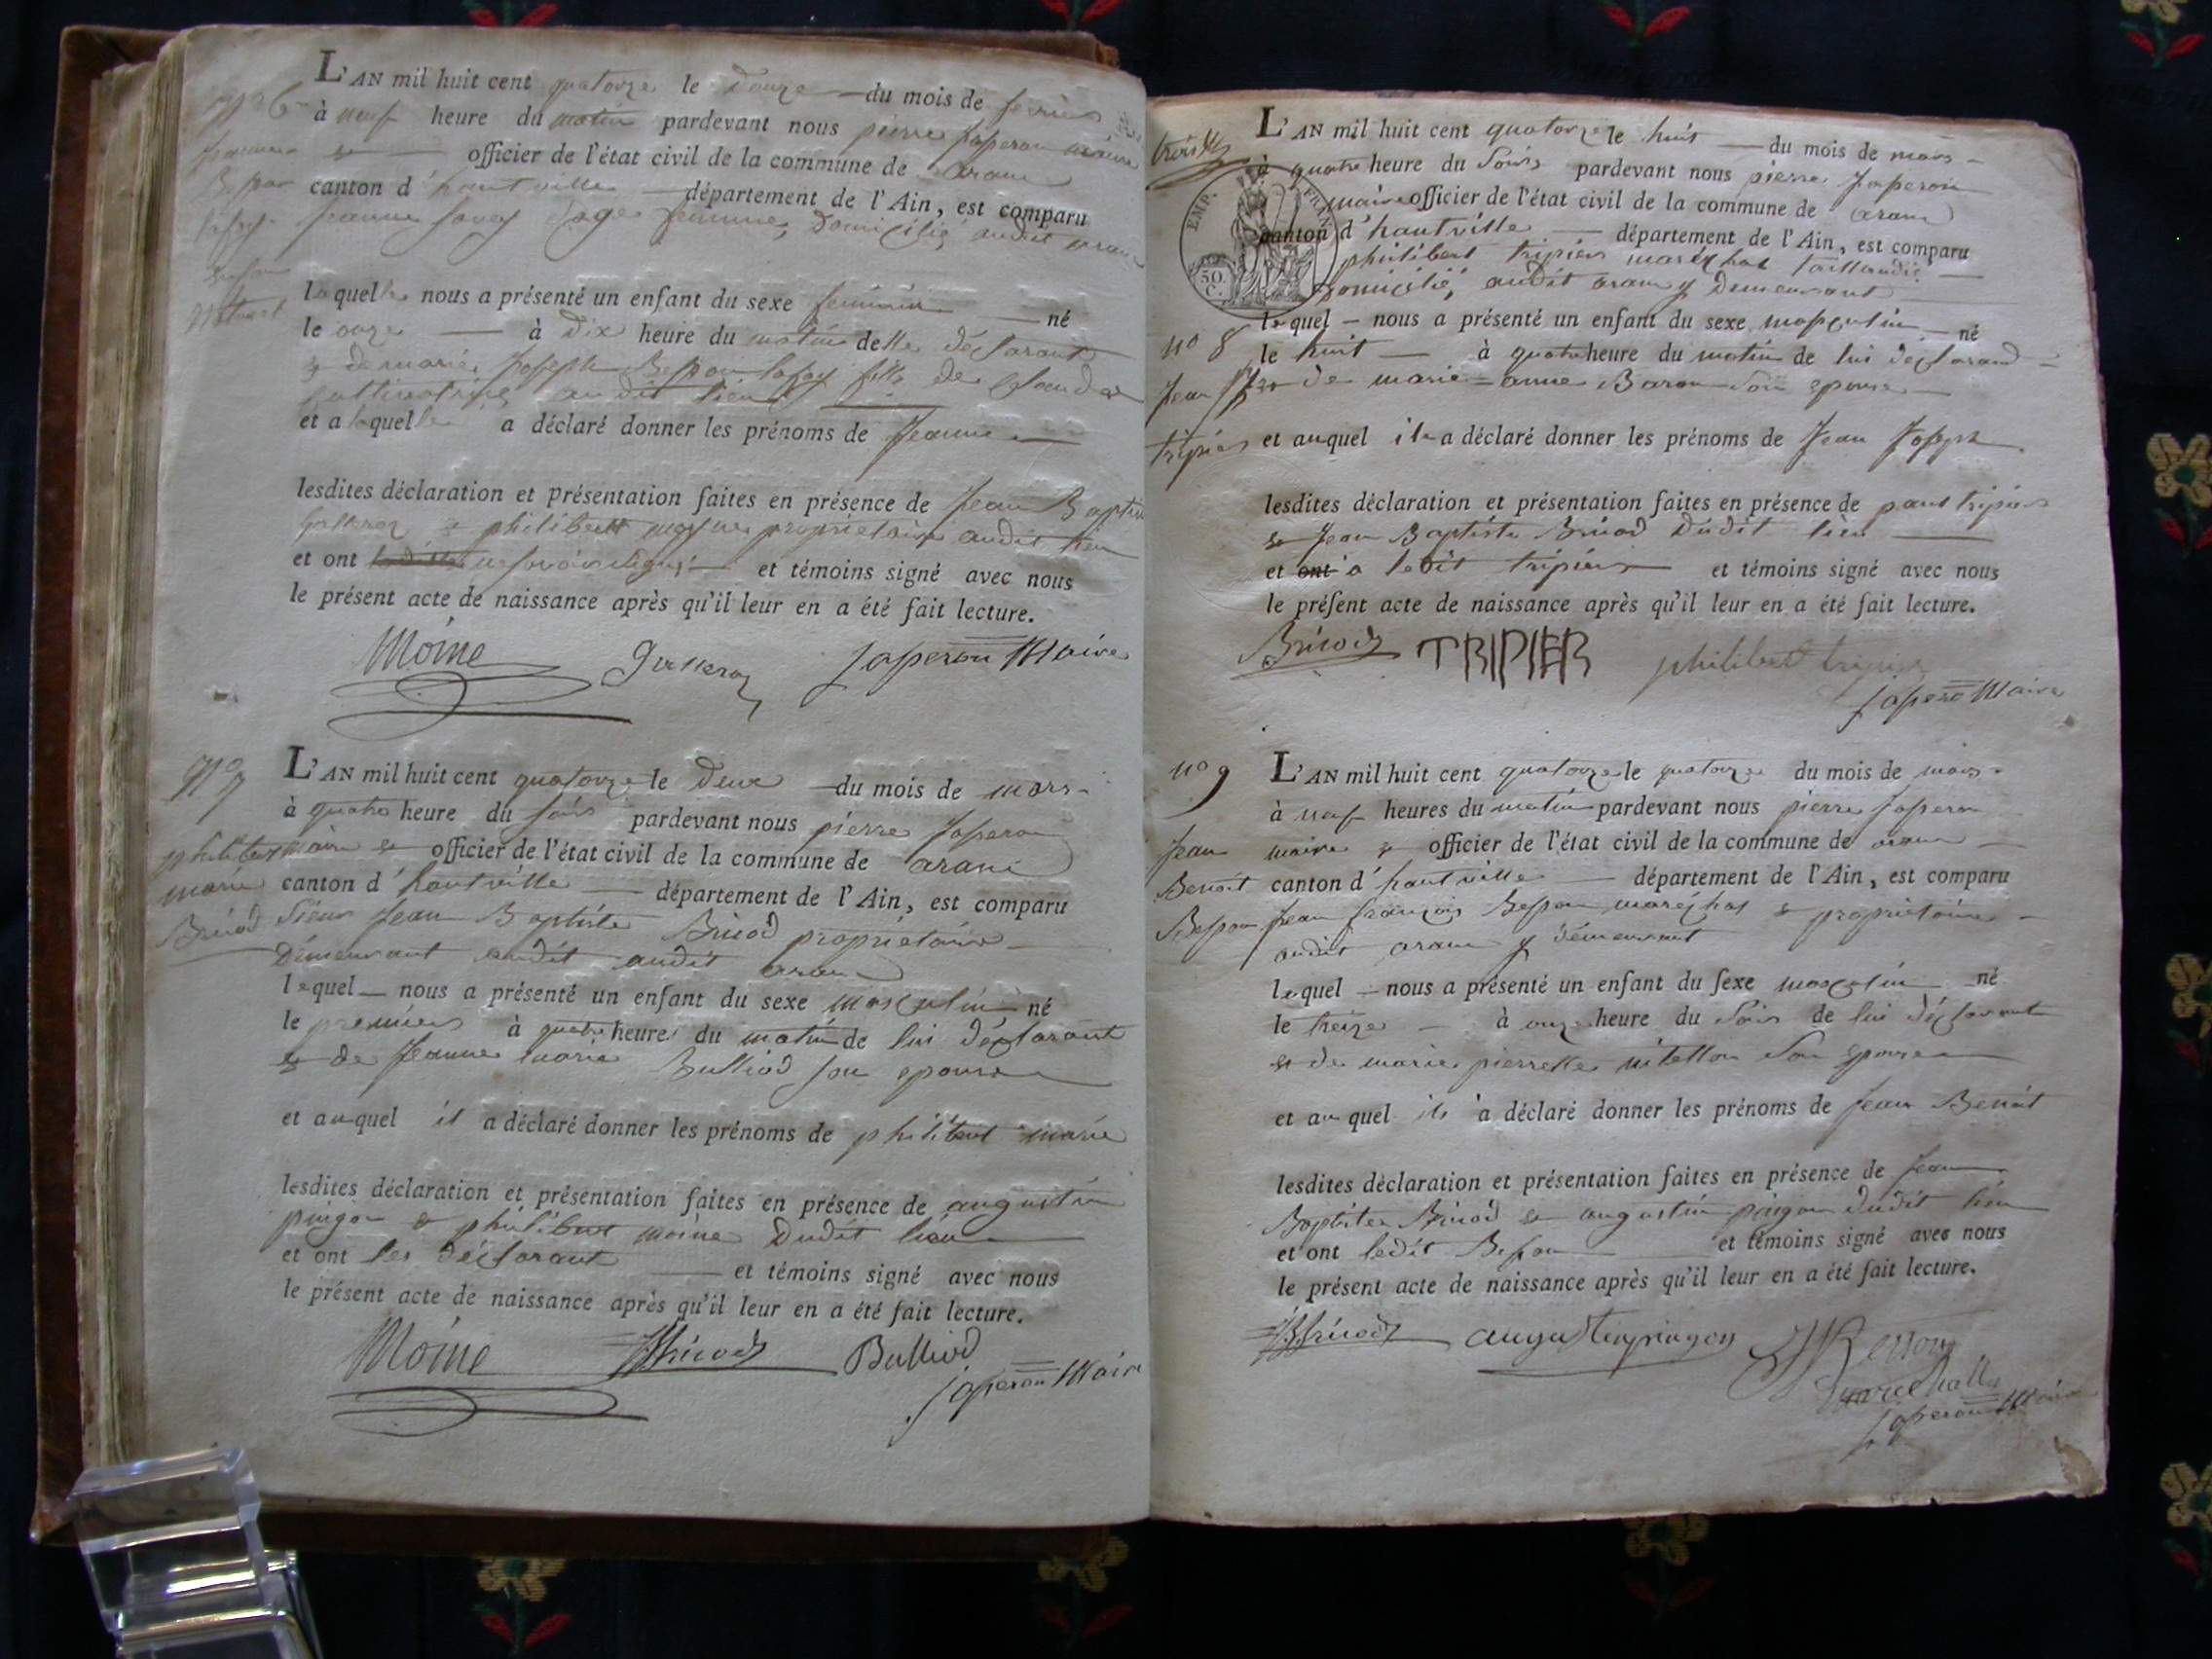 L'AN mil huit cent quatorze le douze du mois de fevrier
à neuf heure du matin pardevant nous pierre Japeron maire
officier de l'état civil de la commune de aranc
canton d'hautville département de l'Ain, est comparu
Jeanne savey sage femme, domicilié audit aranc
laquelle nous a présenté un enfant du sexe feminin né
le onze à dix heure du matin de elle declarant
& de marie Joseph Besson fille de Claude
audit lieu
et a laquelle a déclaré donner les prénoms de Jeanne
lesdites déclaration et présentation faites en présence de Jean Baptiste
& philibert moyne proprietaire audit lieu
et ont et témoins signé avec nous
le présent acte de naissance après qu'il leur en a été fait lecture.
Moine Japeron Maire
N° 7
philibert
marie
Bricod
L'AN mil huit cent quatorze le deux du mois de mars
à quatre heure du soir pardevant nous pierre Japeron
maire & officier de l'état civil de la commune de aranc
canton d'hautville département de l'Ain, est comparu
Sieur Jean Baptiste Bricod proprietaire
Demeurant audit audit aranc
lequel nous a présenté un enfant du sexe masculin né
le premier à quatre heure du matin de lui déclarant
& de Jeanne marie Bulliod son epouse
et auquel il a déclaré donner les prénoms de philibert marie
lesdites déclaration et présentation faites en présence de augustin
pingon & philibert moine dudit lieu
et ont les déclarant et témoins signé avec nous
le présent acte de naissance après qu'il leur en a été fait lecture.
Moine JBBricod Bulliod
Japeron Maire
EMP. FRAN.
50.
C.
L'AN mil huit cent quatorze le huit du mois de mars
à quatre heure du soir pardevant nous pierre Japeron
maire officier de l'état civil de la commune de aranc
canton d'hautville département de l'Ain, est comparu
philibert tripier maréchal taillandié
domicilié, audit aranc y demeurant
lequel nous a présenté un enfant du sexe masculin né
le huit à quatre heure du matin de lui déclarand
& de marie anne Baron son epouse
et auquel il a déclaré donner les prénoms de Jean Joseph
lesdites déclaration et présentation faites en présence de paul tripier
& Jean Baptiste Bricod dudit lieu
et ont a ledit tripier et témoins signé avec nous
le présent acte de naissance après qu'il leur en a été fait lecture.
Bricod TRIPIER philibert tripier
Japeron Maire
n° 8
Jean Jh
tripier
n° 9
Jean
Benoit
Besson
L'AN mil huit cent quatorze le quatorze du mois de mars
à neuf heures du matin pardevant nous pierre Japeron
maire & officier de l'état civil de la commune de aranc
canton d'hautville département de l'Ain, est comparu
Jean françois Besson maréchal & proprietaire
audit aranc y demeurant
lequel nous a présenté un enfant du sexe masculin né
le treize à onze heure du soir de lui déclarant
& de marie pierrette vitellon son epouse
et auquel il a déclaré donner les prénoms de Jean Benoit
lesdites déclaration et présentation faites en présence de Jean
Baptiste Bricod & augustin pingon dudit lieu
et ont ledit Besson et témoins signé avec nous
le présent acte de naissance après qu'il leur en a été fait lecture.
JBBricod augustin pingon Besson
marechalle
Japeron Maire